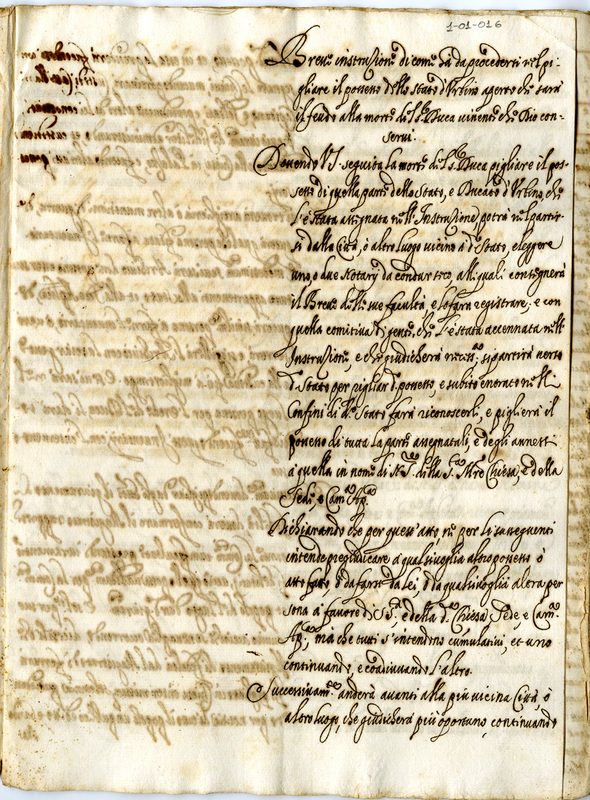 1-01-016
Breve instruzione di come s'à da procedere nel pi-
gliare il possesso dello Stato d'Urbino aperto che sarà
il feudo alla morte di S.r Duca vivente che Dio con-
servi.
Dovendo V.S. seguita la morte di S.r Duca pigliare il pos-
sesso di quella parte dello Stato, e Ducato d'Urbino, che
l'è stata assignata nell'Instruzione, potrà nel partir-
si dalla Città, ò altro luogo vicino à d.o Stato, eleggere
uno, o due Notary da condur seco, alli quali consegnerà
il Breve delle sue facultà, e lo farà registrare; e con
quella comitiva di gente, che l'è stata accennata nell'
Instruzione, e che giudicherà necess.a si partirà verso
d.o Stato per pigliar il possesso, e subito entrato nelli
Confini di d.o Stato farà riconoscerli, e piglierà il
possesso di tutta la parte assegnatali, e degli annessi
à quella in nome di N.S. della S.ta M.re Chiesa, e della
Sede, e Cam.a Ap.ca
Dichiarando che per quest'atto ne per li susseguenti
intende pregiudicare à qualsivoglia altro possesso ò
atto fatto, ò da farsi da lei, ò da qualsivoglia altra per
sona à favore di S.S.tà, e della d.a Chiesa, Sede e Cam.a
Ap.ca, ma che tutti s'intendono cumulativi, et uno
continuando, e coadiuvando l'altro.
Successivam.te anderà avanti alla più vicina Città, ò
altro luogo, che giudicherà più oportuno, continuando